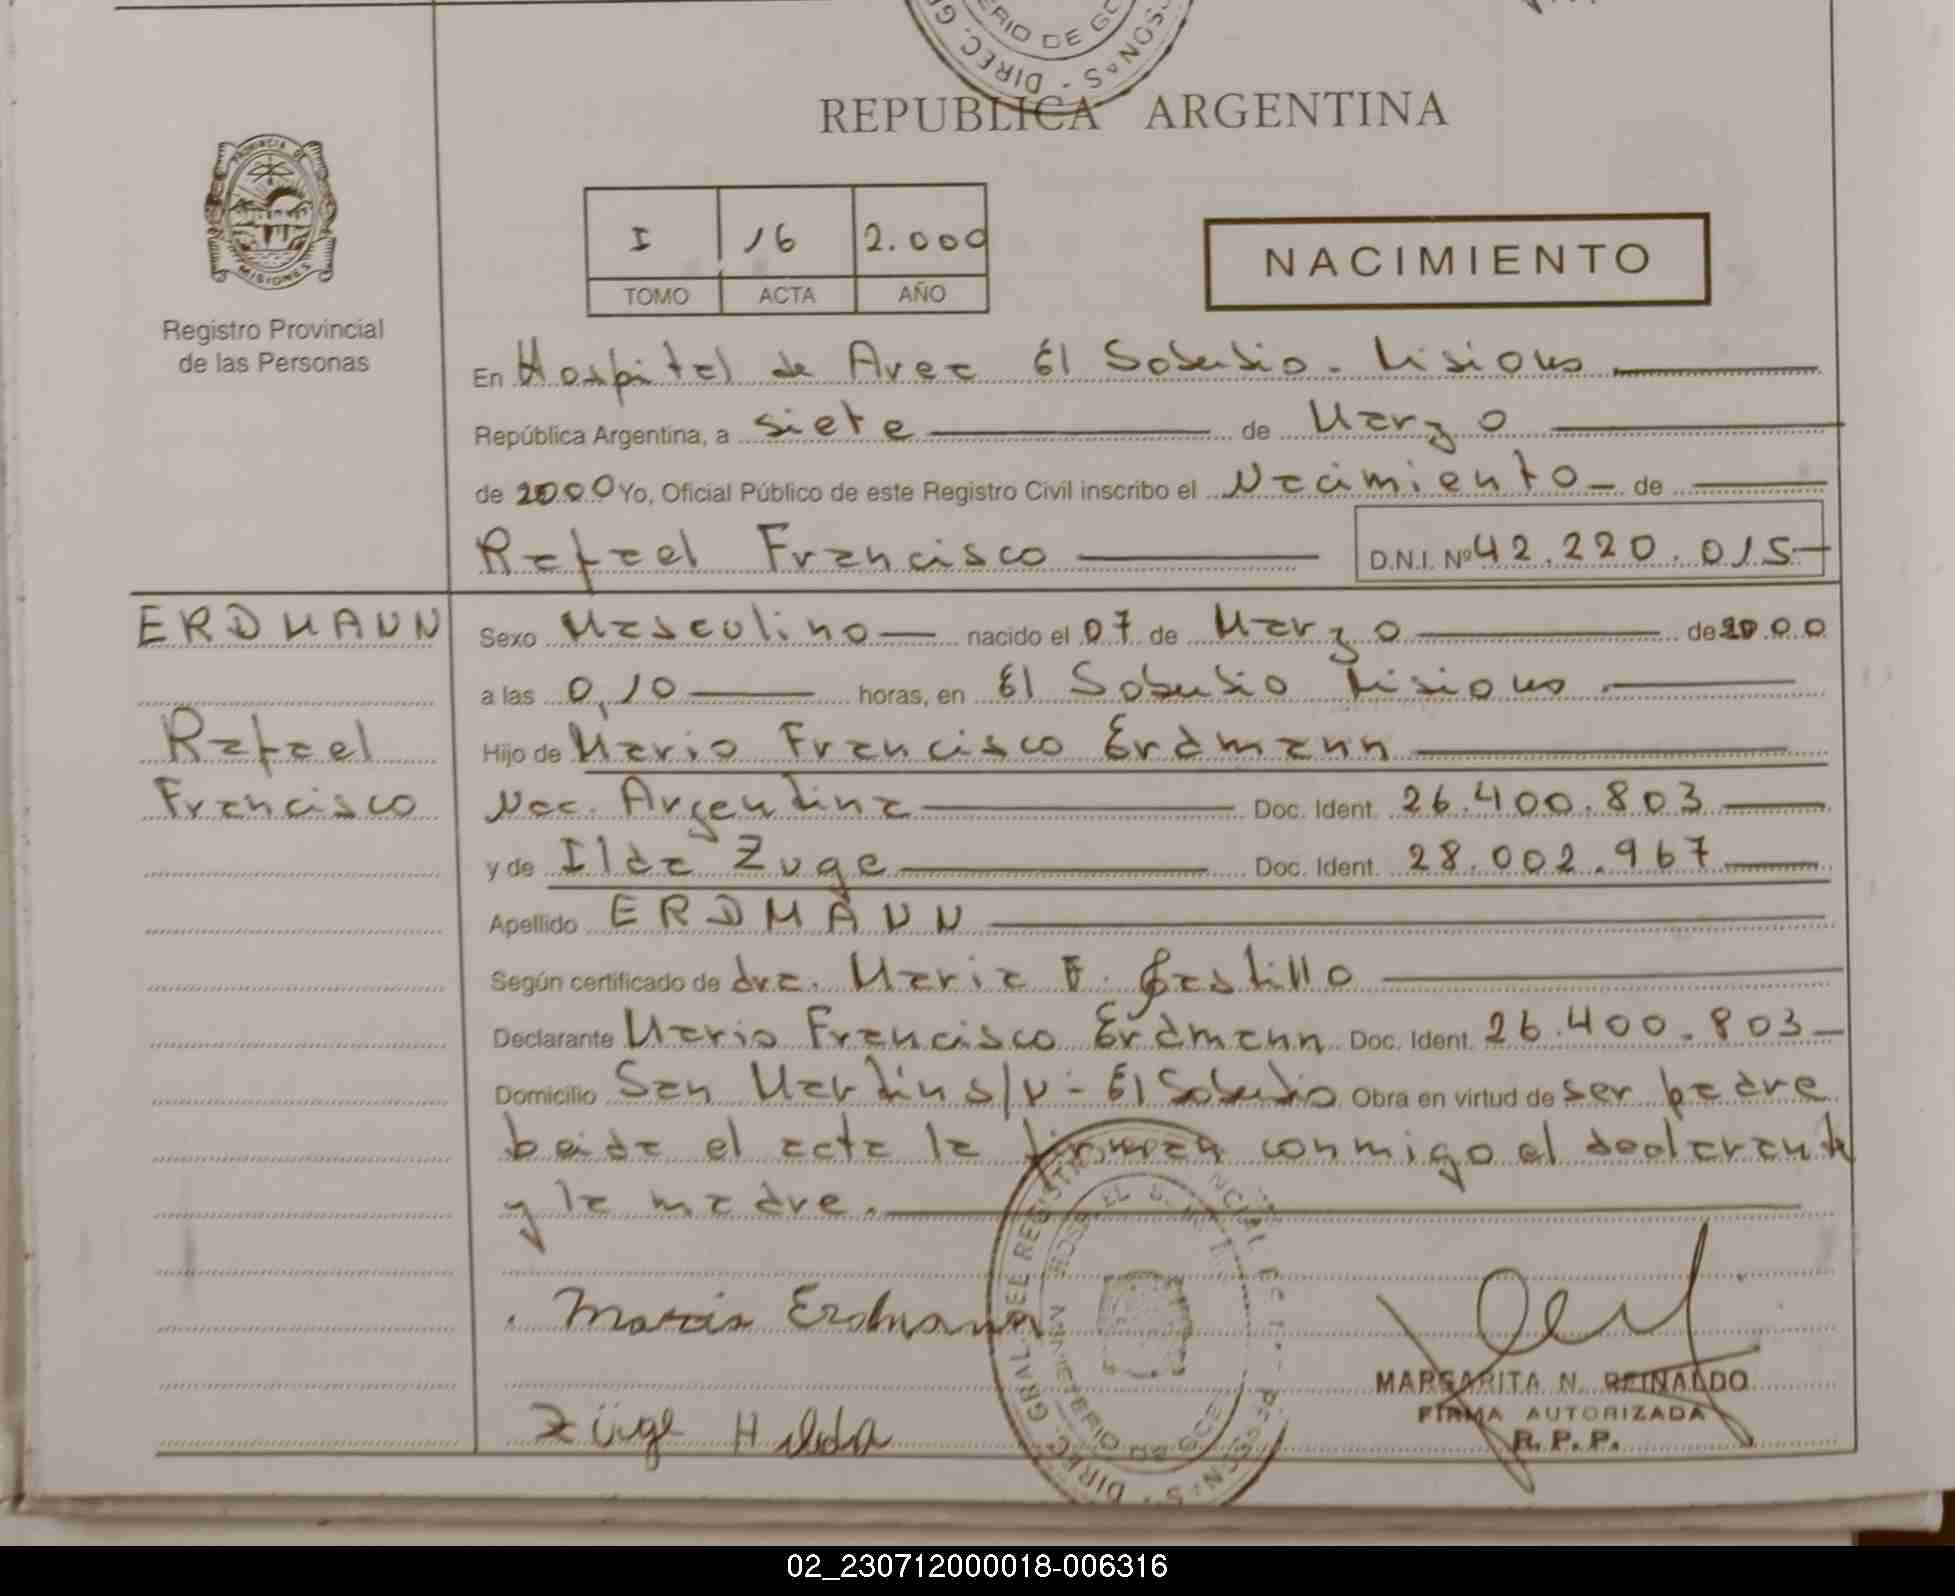 DIREC. GR
ERIO DE GO
SONAS -
REPUBLICA ARGENTINA
PROVINCIA DE
MISIONES
Registro Provincial
de las Personas
I 16 2.000
TOMO ACTA AÑO
NACIMIENTO
En Hospital de Area El Soberbio - Misiones
República Argentina, a siete de Marzo
de 2000 Yo, Oficial Público de este Registro Civil inscribo el Nacimiento de
Rafael Francisco D.N.I. Nº 42.220.015
ERDMANN
Rafael
Francisco
Sexo Masculino nacido el 07 de Marzo de 2000
a las 0,10 horas, en El Soberbio Misiones
Hijo de Mario Francisco Erdmann
Nac. Argentina Doc. Ident. 26.400.803
y de Ilda Zuge Doc. Ident. 28.002.967
Apellido ERDMANN
Según certificado de dra. Maria F. Castillo
Declarante Mario Francisco Erdmann Doc. Ident. 26.400.803
Domicilio San Martin s/n - El Soberbio Obra en virtud de ser padre
leida el acta la firman conmigo el declarante
y la madre.
Mario Erdmann
Züge Hilda
DIREC. GRAL. DEL REGIST
MINISTERIO DE GOB
MARGARITA N. REINALDO
FIRMA AUTORIZADA
R.P.P.
02_230712000018-006316